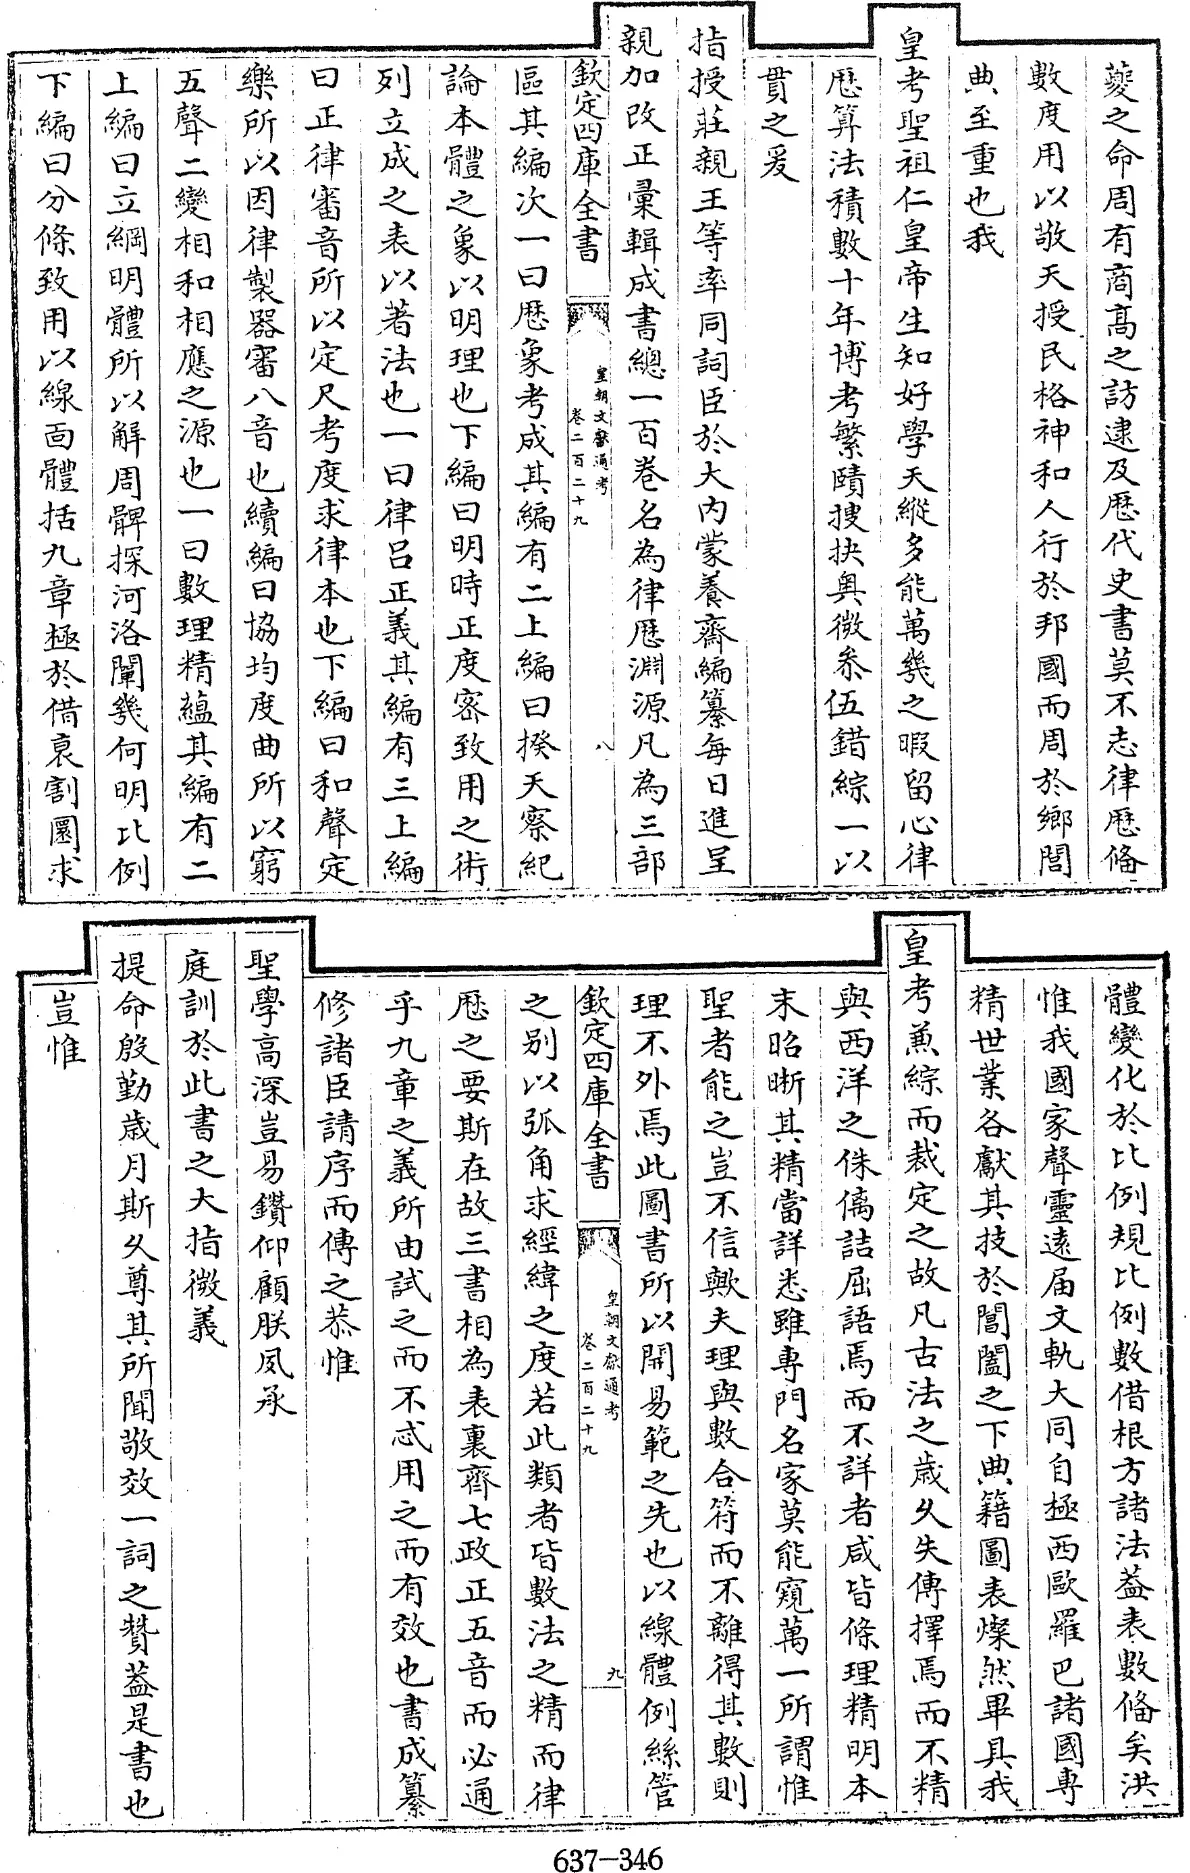 夔之命周有商髙之訪逮及歴代史書莫不志律歴備
數度用以敬天授民格神和人行於邦國而周於鄉閭
典至重也我
皇考聖祖仁皇帝生知好學天縱多能萬幾之暇留心律
歴算法積數十年博考繁賾搜抉奥微叅伍錯綜一以
貫之爰
指授莊親王等率同詞臣於大内蒙養齋編纂每日進呈
親加改正彚輯成書總一百卷名為律歴淵源凡為三部
欽定四庫全書
皇朝文獻通考
卷二百二十九
八
區其編次一曰歴象考成其編有二上編曰揆天察紀
論本體之象以明理也下編曰明時正度密致用之術
列立成之表以著法也一曰律吕正義其編有三上編
曰正律審音所以定尺考度求律本也下編曰和聲定
樂所以因律製器審八音也續編曰協均度曲所以窮
五聲二變相和相應之源也一曰數理精藴其編有二
上編曰立綱明體所以解周髀探河洛闡幾何明比例
下編曰分條致用以線面體括九章極於借衰割圜求
體變化於比例規比例數借根方諸法葢表數備矣洪
惟我國家聲靈遠届文軌大同自極西歐羅巴諸國專
精世業各獻其技於閶闔之下典籍圖表燦然畢具我
皇考兼綜而裁定之故凡古法之歲久失傳擇焉而不精
與西洋之侏𠌯詰屈語焉而不詳者咸皆條理精明本
末昭晣其精當詳悉雖專門名家莫能窺萬一所謂惟
聖者能之豈不信歟夫理與數合符而不離得其數則
理不外焉此圖書所以開易範之先也以線體例絲管
欽定四庫全書
皇朝文獻通考
卷二百二十九
九
之别以弧角求經緯之度若此類者皆數法之精而律
歴之要斯在故三書相為表裏齊七政正五音而必通
乎九章之義所由試之而不忒用之而有效也書成纂
修諸臣請序而傳之恭惟
聖學高深豈易鑽仰顧朕夙承
庭訓於此書之大指微義
提命殷勤歲月斯久尊其所聞敬效一詞之贊葢是書也
豈惟
637-346